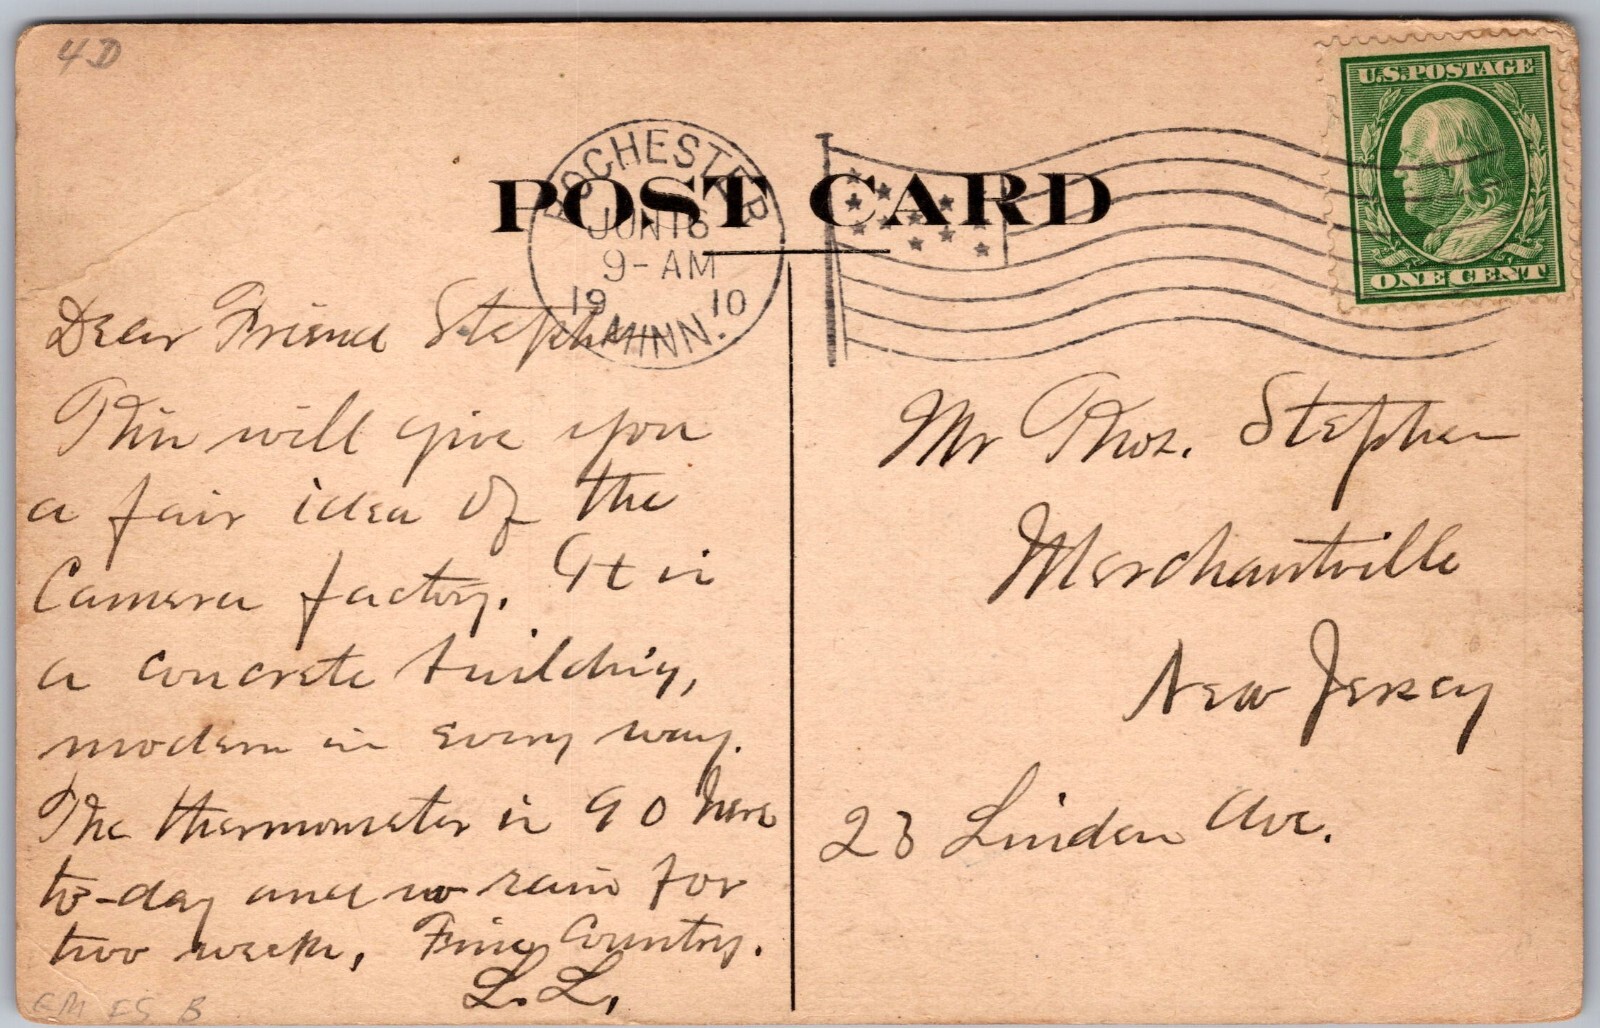 4D
U.S. POSTAGE
ONE CENT
POST CARD
ROCHESTER
JUN 16
9-AM
19 10
MINN.
Dear Friend Stephen
This will give you
a fair idea of the
Camera factory. It is
a concrete building,
modern in every way.
The thermometer is 90 here
to-day and no rain for
two weeks, Fine Country.
L.L.
Mr Thos. Stephen
Merchantville
New Jersey
23 Linden Ave.